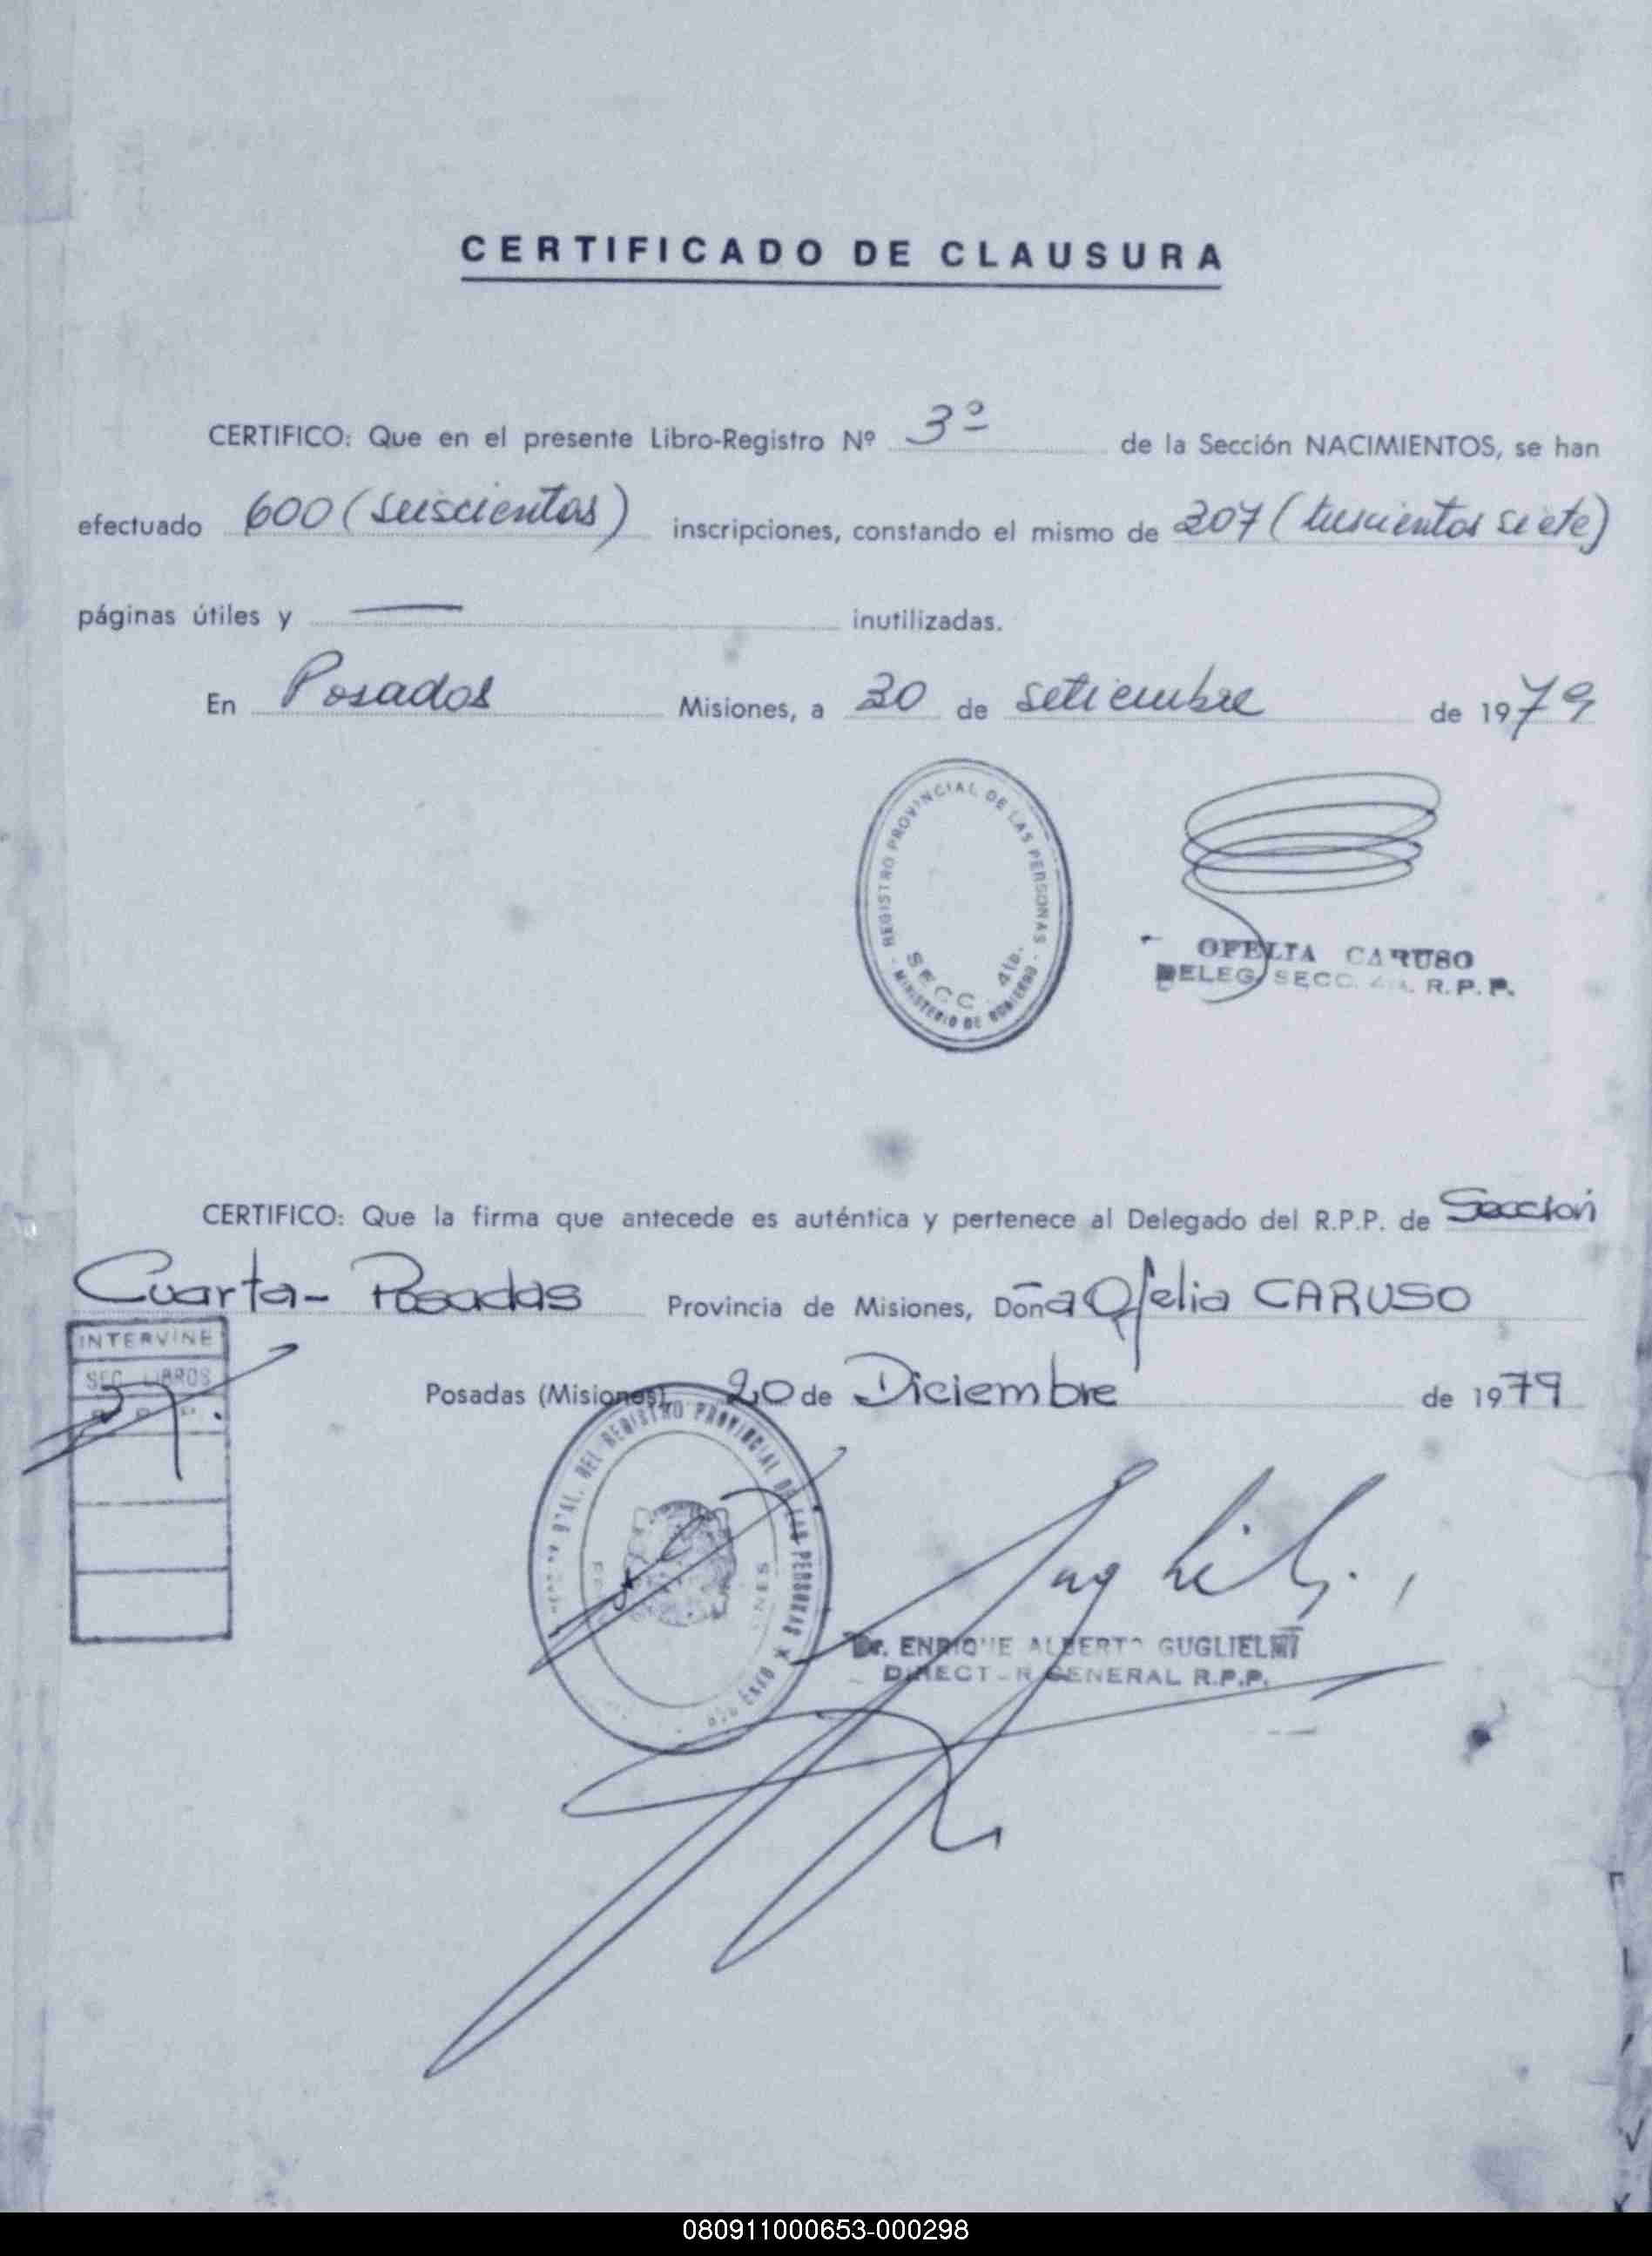 CERTIFICADO DE CLAUSURA
CERTIFICO: Que en el presente Libro-Registro Nº 3º de la Sección NACIMIENTOS, se han
efectuado 600 (seiscientas) inscripciones, constando el mismo de 307 (trescientos siete)
páginas útiles y — inutilizadas.
En Posadas Misiones, a 30 de setiembre de 1979
REGISTRO PROVINCIAL DE LAS PERSONAS
SECC. 4ta.
- MINISTERIO DE GOBIERNO -
OFELIA CARUSO
DELEG. SECC. 4ta. R.P.P.
CERTIFICO: Que la firma que antecede es auténtica y pertenece al Delegado del R.P.P. de Sección
Cuarta- Posadas Provincia de Misiones, Doña Ofelia CARUSO
INTERVINE
SEC. LIBROS
Posadas (Misiones), 20 de Diciembre de 1979
DEL REGISTRO PROVINCIAL DE LAS PERSONAS
Dr. ENRIQUE ALBERTO GUGLIELMI
DIRECTOR GENERAL R.P.P.
080911000653-000298